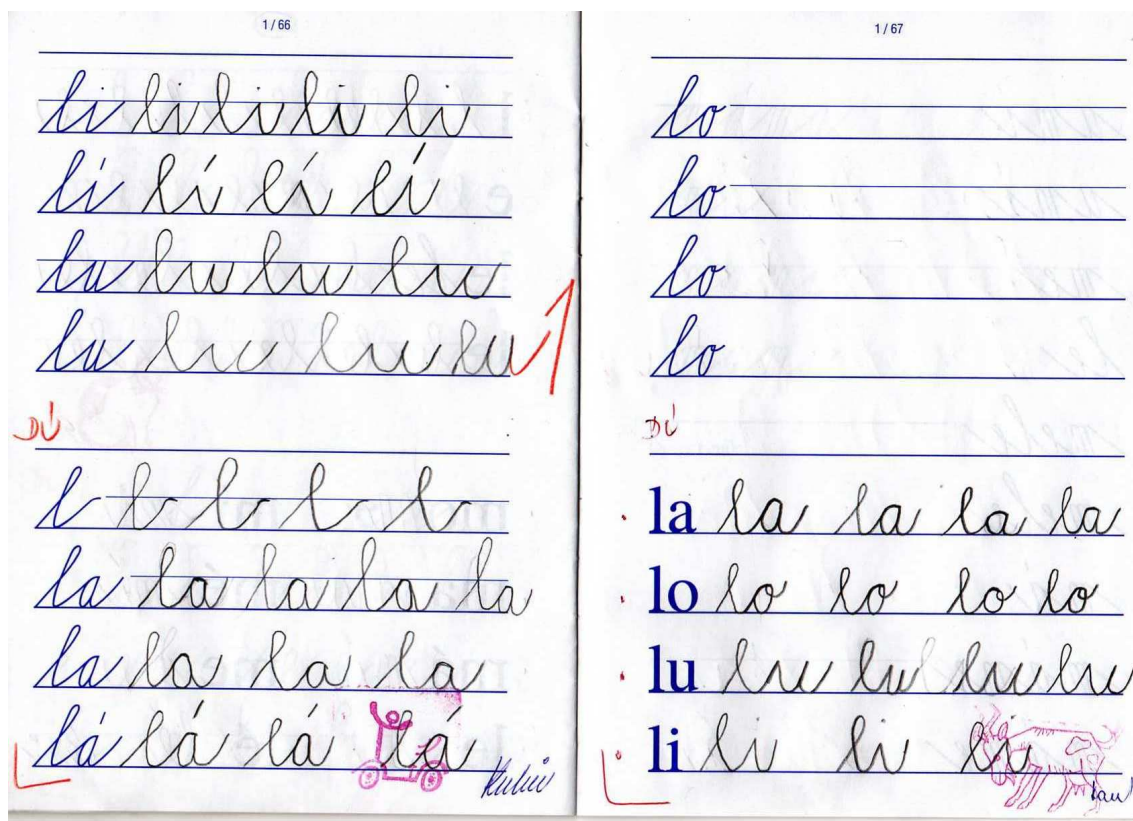 1 / 66
li li li li li
lí lí lí lí
lu lu lu lu
lu lu lu lu
DÚ
l l l l l
la la la la la
la la la la
lá lá lá lá
1 / 67
lo
lo
lo
lo
DÚ
la la la la la
lo lo lo lo lo
lu lu lu lu lu
li li li li